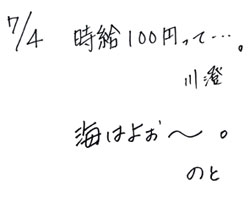 7/4 時給100円って…。
川澄
海はよぉ〜。
のと